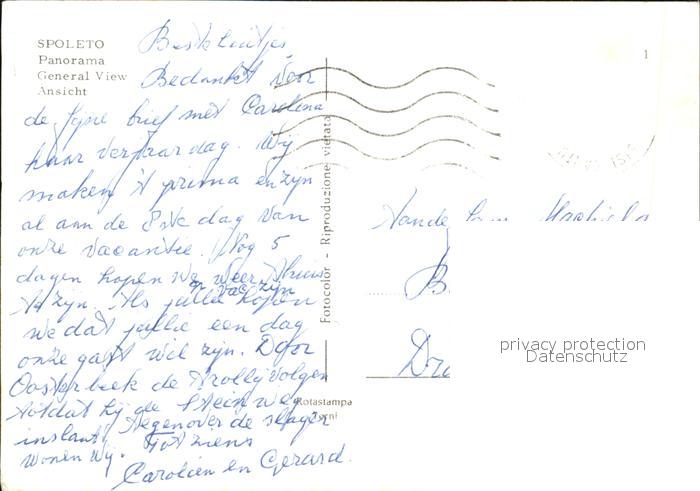 SPOLETO
Panorama
General View
Ansicht
1
Bedankt voor
de fijne brief met Carolina
haar verjaardag. Wij
maken 't prima en zijn
al aan de 8ste dag van
onze vacantie. Nog 5
dagen hopen we weer thuis
te zijn. Als jullie op vac. zijn hopen
we dat jullie een dag
onze gast wil zijn. Door
Oosterbeek de trolly volgen
totdat hij de Steinweg
inslaat. Tegenover de slager
wonen wij. Tot ziens
Carolien en Gerard.
Fotocolor - Riproduzione vietata
Rotastampa
Terni
Aan de
B
Dr
privacy protection
Datenschutz